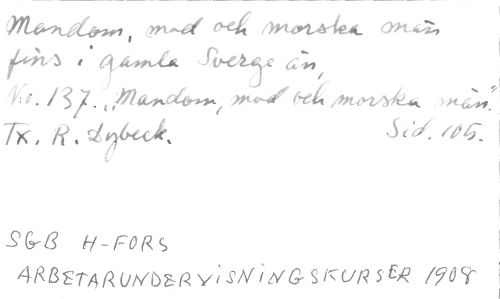 Mandom, mod och morska män
fins i gamla Sverge än,
No. 137. „Mandom, mod och morska män."
Tx. R. Dybeck. Sid. 105.
SGB H-FORS
ARBETARUNDERVISNINGSKURSER 1908